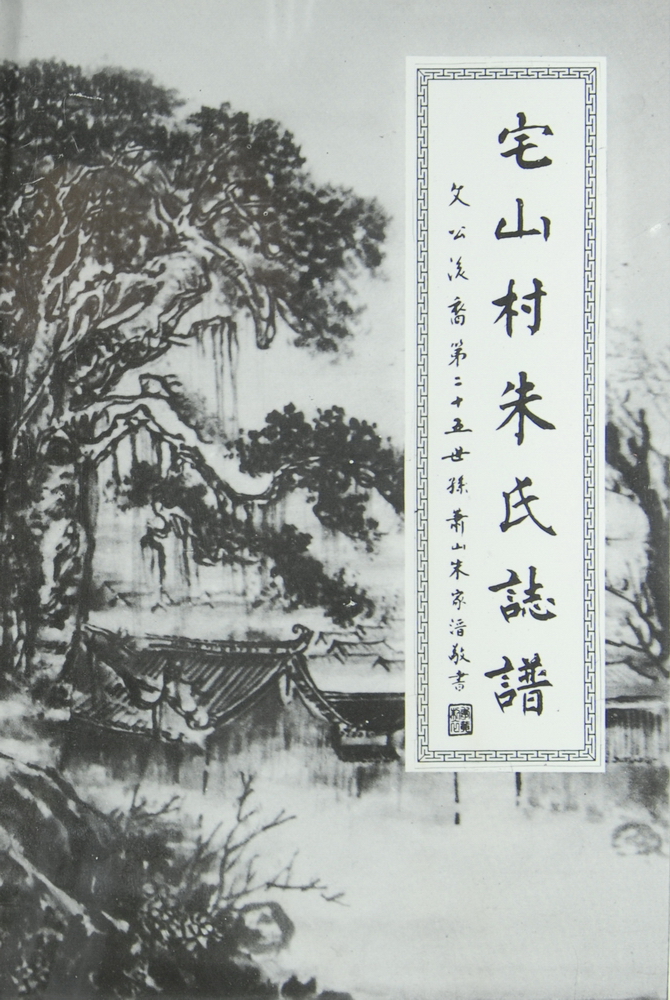 宅山村朱氏誌譜
文公後裔第二十五世孫蕭山朱家溍敬書